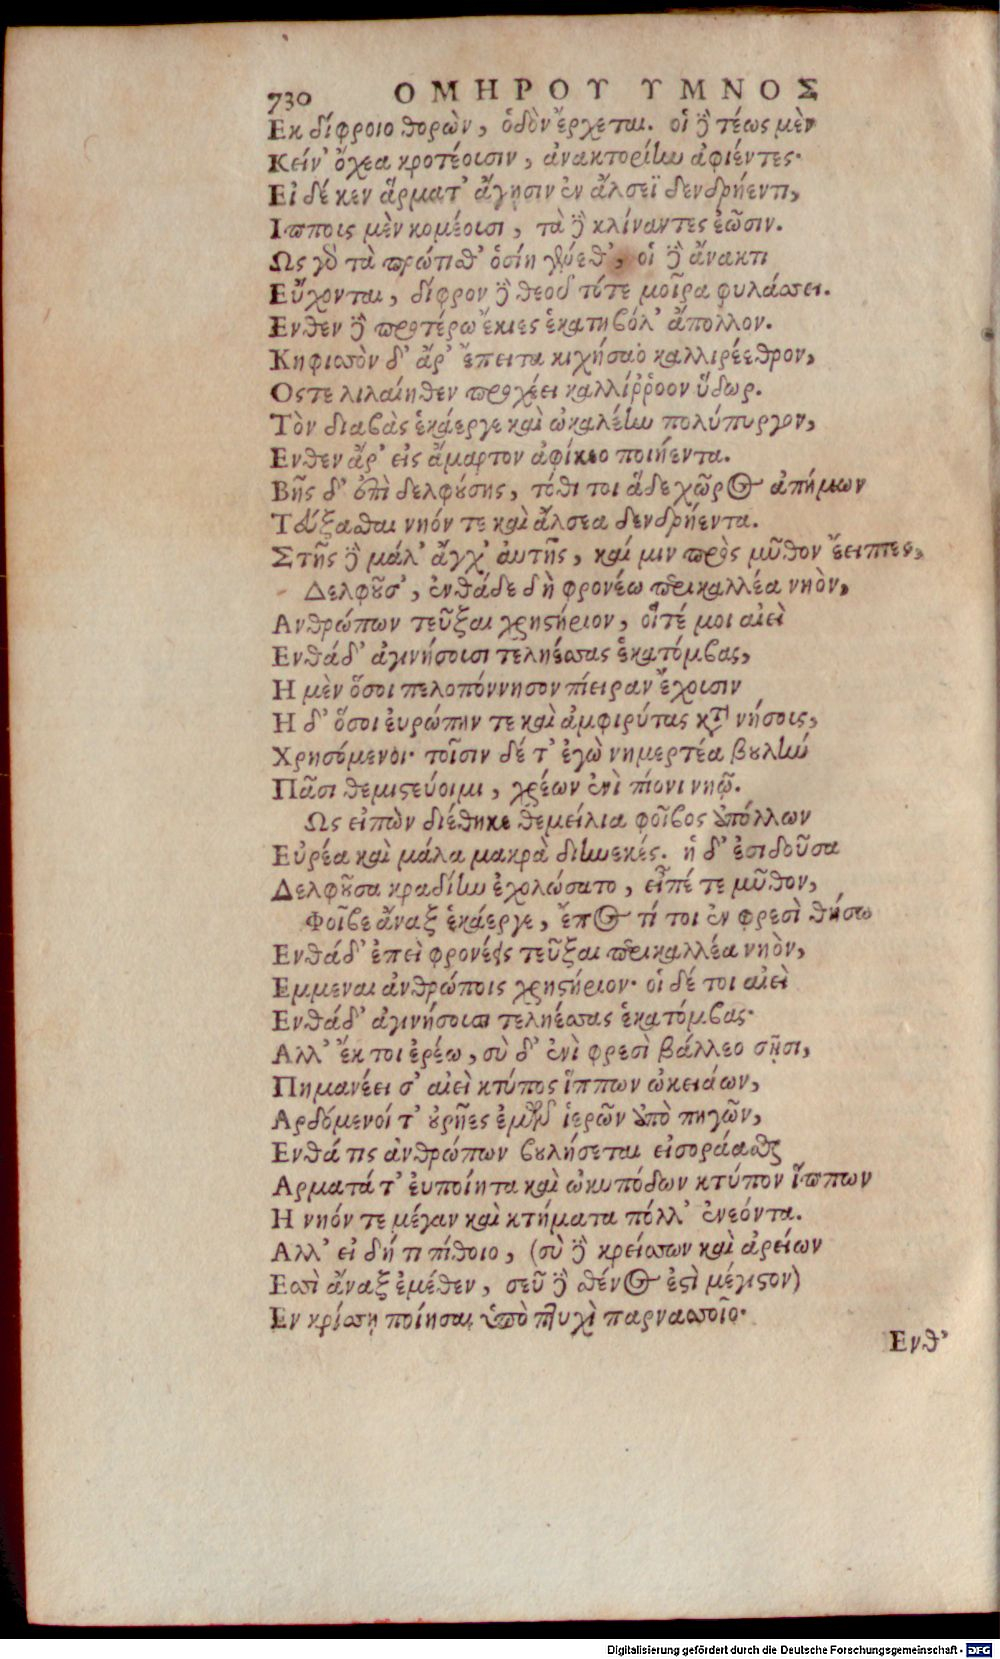 730 ΟΜΗΡΟΥ ΥΜΝΟΣ
Εκ δίφροιο θορὼν, ὁδὸν ἔρχεται. οἱ δὲ τέως μὲν
Κείν' ὄχεα κροτέοισιν, ἀνακτορίην ἀφιέντες·
Εἰ δέ κεν ἅρματ' ἄγησιν ἐν ἄλσεϊ δενδρήεντι,
Ιπποις μὲν κομέοισι, τὰ δὲ κλίναντες ἐῶσιν.
Ως γὰρ τὰ πρώτισθ' ὁσίη γένεθ', οἱ δὲ ἄνακτι
Εὔχονται, δίφρον δὲ θεοῦ τότε μοῖρα φυλάσσει.
Ενθεν δὲ προτέρω ἔκιες ἑκατηβόλ' ἄπολλον.
Κηφισσὸν δ' ἄρ' ἔπειτα κιχήσαο καλλιρέεθρον,
Οςτε λιλαίηθεν προχέει καλλίῤῥοον ὕδωρ.
Τὸν διαβὰς ἑκάεργε καὶ ὠκαλέην πολύπυργον,
Ενθεν ἄρ' εἰς ἅμαρτον ἀφίκεο ποιήεντα.
Βῆς δ' ἐπὶ δελφούσης, τόθι τοι ἅδε χῶρος ἀπήμων
Τεύξασθαι νηόν τε καὶ ἄλσεα δενδρήεντα.
Στῆς δὲ μάλ' ἄγχ' ἀυτῆς, καί μιν πρὸς μῦθον ἔειπες,
Δελφοῦσ', ἐνθάδε δὴ φρονέω περικαλλέα νηὸν,
Ανθρώπων τεῦξαι χρηστήριον, οἵτέ μοι αἰεὶ
Ενθάδ' ἀγινήσοισι τεληέσσας ἑκατόμβας,
Η μὲν ὅσοι πελοπόννησον πίειραν ἔχοισιν
Η δ' ὅσοι ἐυρώπην τε καὶ ἀμφιρύτας κατὰ νήσοις,
Χρησόμενοι· τοῖσιν δέ τ' ἐγὼ νημερτέα βουλὴν
Πᾶσι θεμιστεύοιμι, χρέων ἐνὶ πίονι νηῷ.
Ως εἰπὼν διέθηκε θεμείλια φοῖβος ἀπόλλων
Εὐρέα καὶ μάλα μακρὰ διηνεκές. ἡ δ' ἐσιδοῦσα
Δελφοῦσα κραδίην ἐχολώσατο, εἶπέ τε μῦθον,
Φοῖβε ἄναξ ἑκάεργε, ἔπος τί τοι ἐν φρεσὶ θήσω
Ενθάδ' ἐπεὶ φρονέεις τεῦξαι περικαλλέα νηὸν,
Εμμεναι ἀνθρώποις χρηστήριον· οἱ δέ τοι αἰεὶ
Ενθάδ' ἀγινήσουσι τεληέσσας ἑκατόμβας·
Αλλ' ἔκ τοι ἐρέω, σὺ δ' ἐνὶ φρεσὶ βάλλεο σῇσι,
Πημανέει σ' αἰεὶ κτύπος ἵππων ὠκειάων,
Αρδόμενοί τ' οὐρῆες ἐμῶν ἱερῶν ἀπὸ πηγῶν,
Ενθά τις ἀνθρώπων βουλήσεται εἰσοράασθαι
Αρματά τ' ἐυποίητα καὶ ὠκυπόδων κτύπον ἵππων
Η νηόν τε μέγαν καὶ κτήματα πόλλ' ἐνεόντα.
Αλλ' εἰ δή τι πίθοιο, (σὺ δὲ κρείσσων καὶ ἀρείων
Εσσὶ ἄναξ ἐμέθεν, σεῦ δὲ σθένος ἐστὶ μέγιστον)
Εν κρίσσῃ ποίησαι ὑπὸ πτυχὶ παρνασσοῖο·
Ενθ'
Digitalisierung gefördert durch die Deutsche Forschungsgemeinschaft - DFG